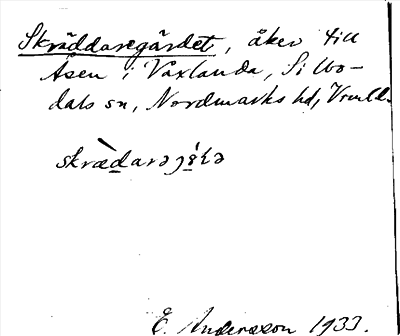 Skräddaregärdet, åker till
Åsen i Vaxlanda, Silbo-
dals sn, Nordmarks hd, Vrmld.
E. Andersson 1933.